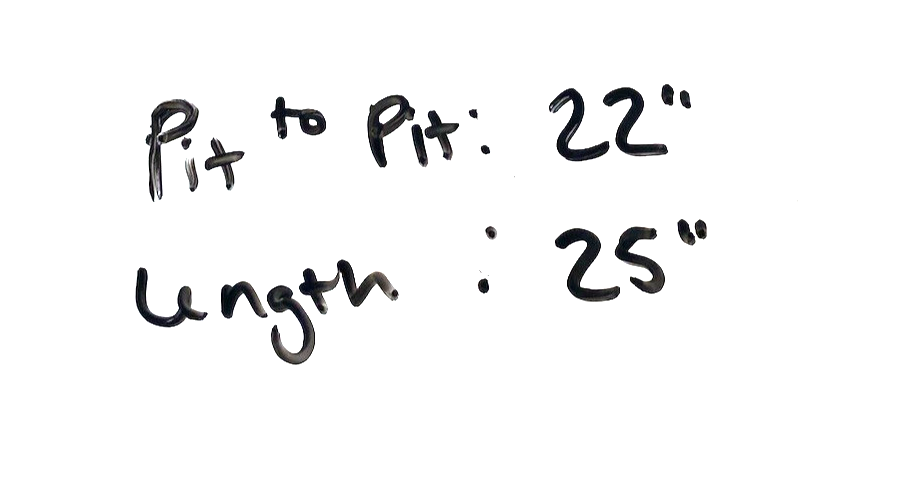 Pit to Pit: 22"
Length : 25"